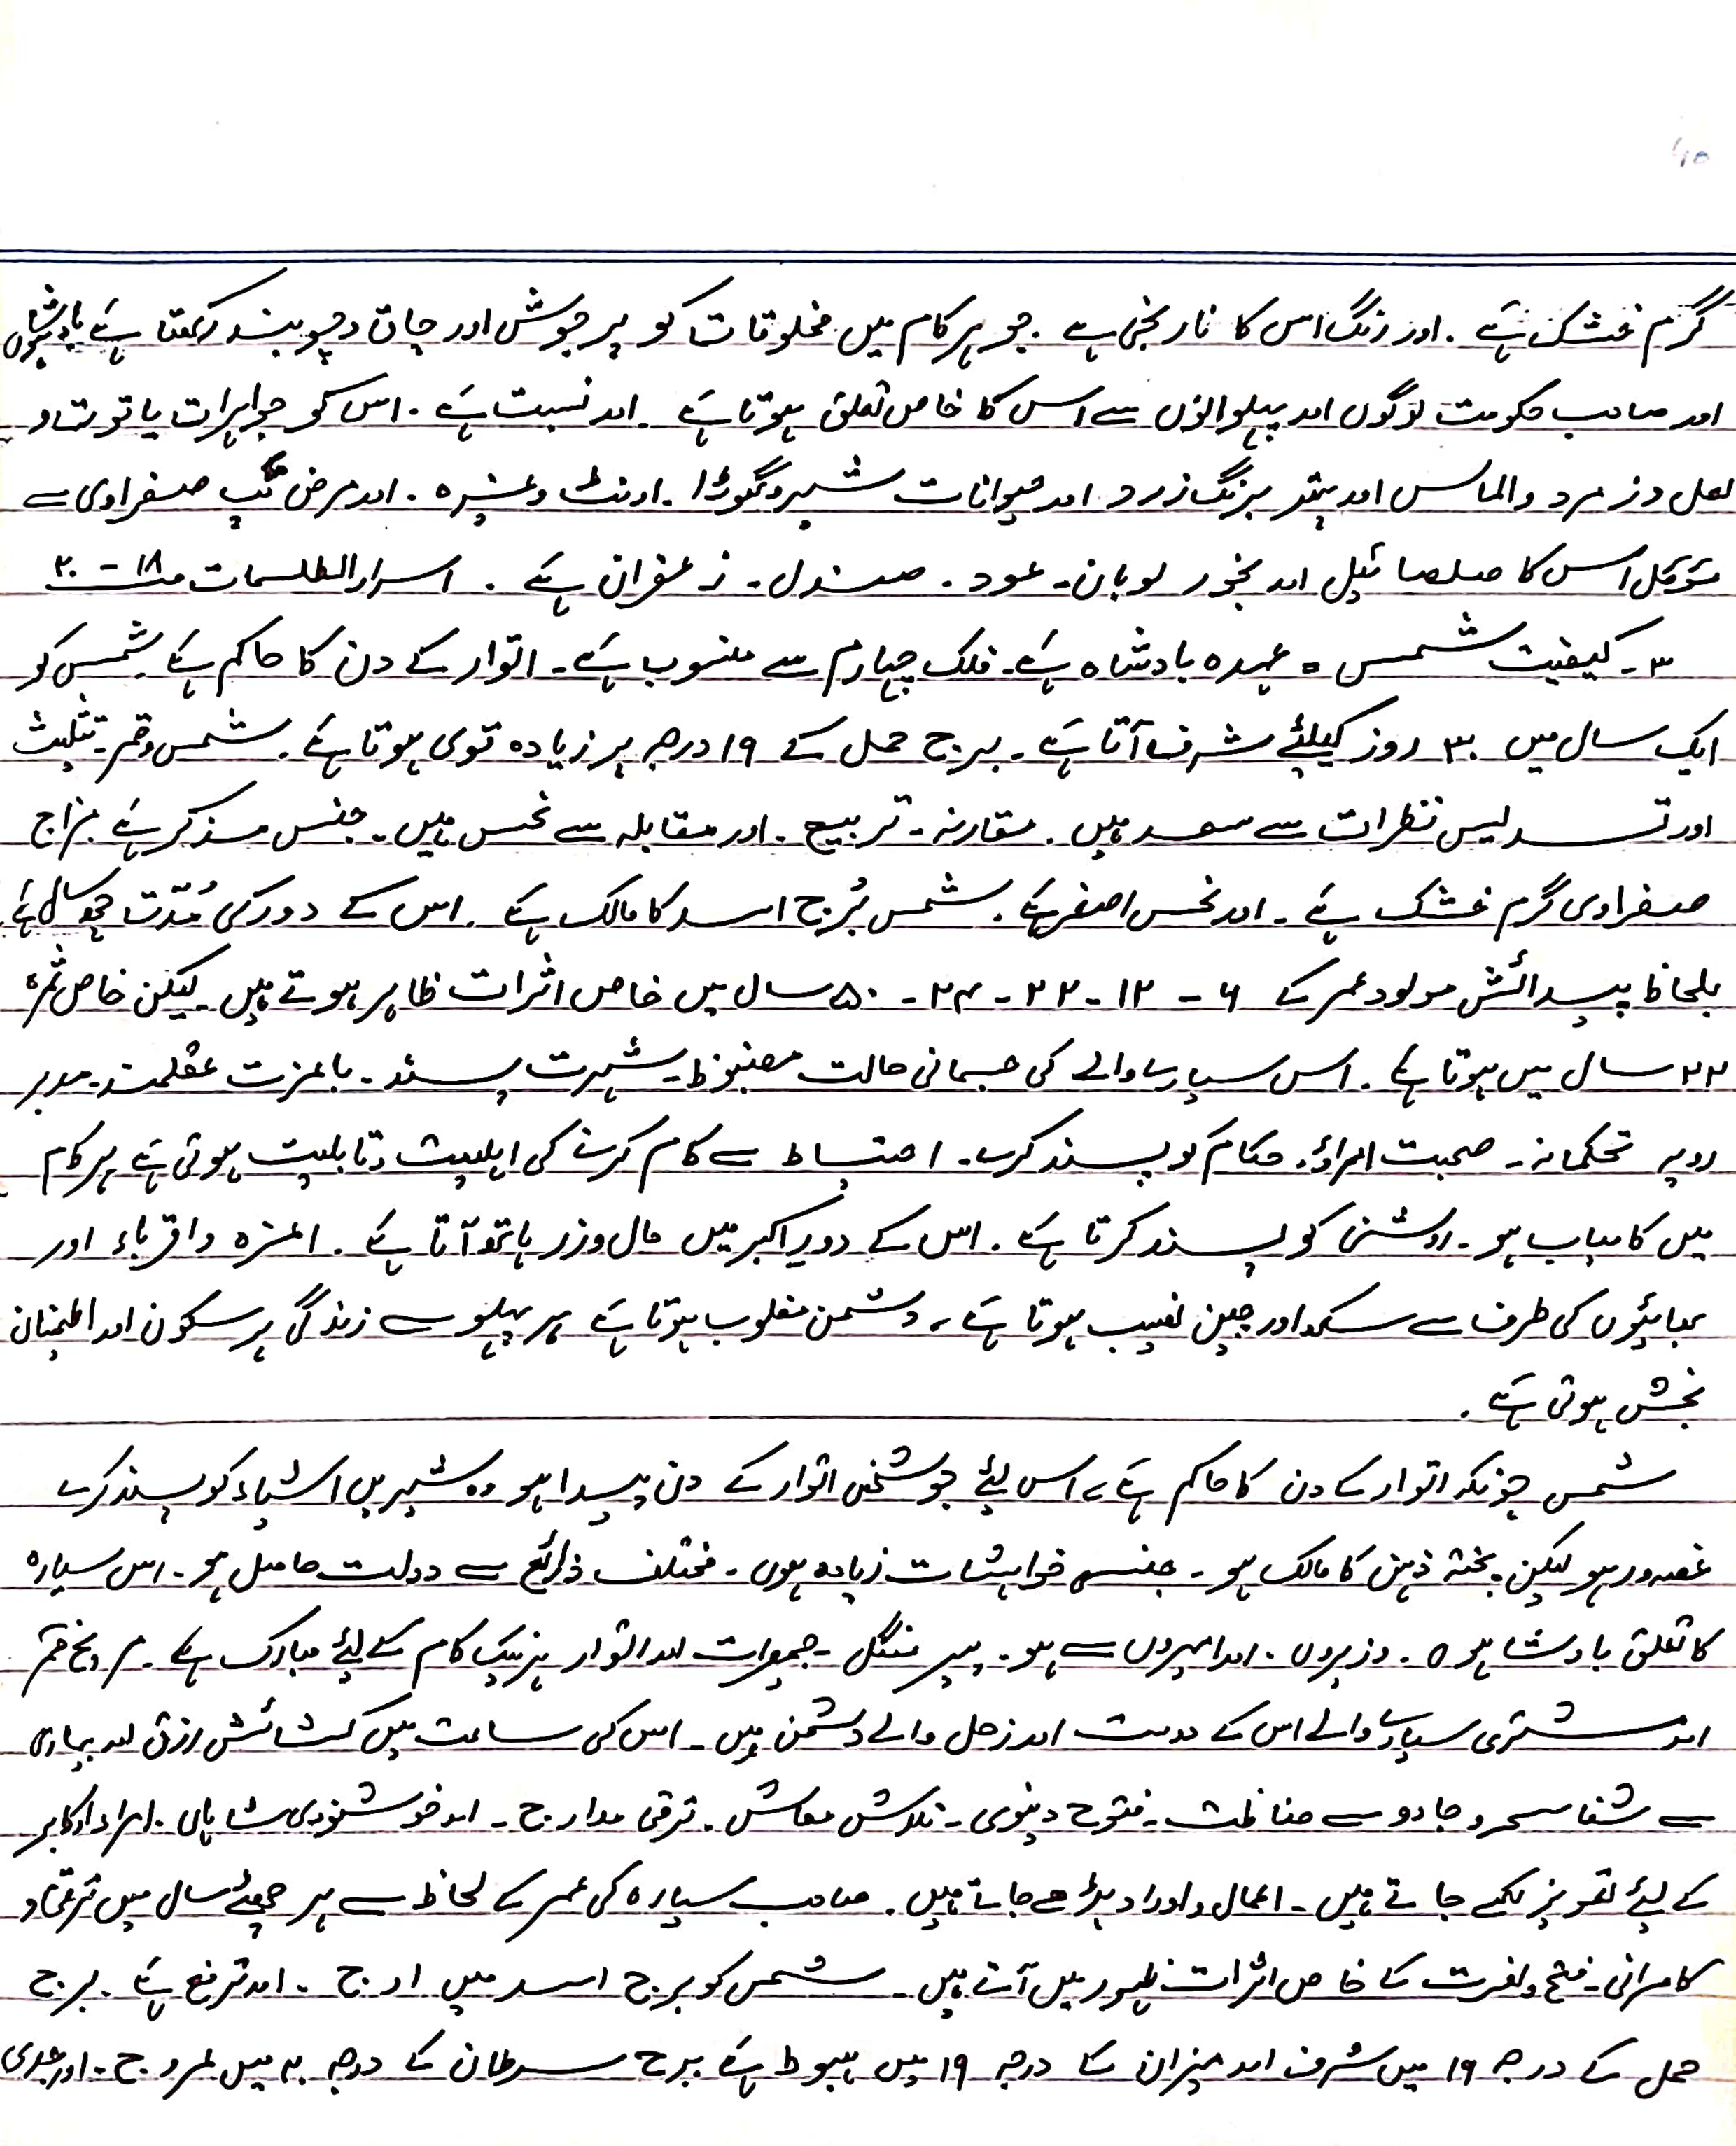 گرم خشک ہے ۔ اور رنگ اس کا نارنجی ہے ۔ جو ہر کام میں مخلوقات کو پرجوش اور چاق و چوبند رکھتا ہے بادشاہوں
اور صاحب حکومت لوگوں اور پہلوانوں سے اس کا خاص تعلق ہوتا ہے ۔ اور نسبت ہے ۔ اس کو جواہرات یاقوت و
لعل و زمرد و الماس اور پتھر برنگ زرد اور حیوانات شیر و گھوڑا ۔ اونٹ وغیرہ ۔ اور مرض تپ صفراوی سے
مؤکل اس کا صلصائیل اور بخور لوبان ۔ عود ۔ صندل ۔ زعفران ہے ۔ اسرار الطلسمات صـ ۱۸ - ۲۰
۳ ۔ کیفیت شمس = عہدہ بادشاہ ہے ۔ فلک چہارم سے منسوب ہے ۔ اتوار کے دن کا حاکم ہے شمس کو
ایک سال میں ۳۰ روز کیلئے شرف آتا ہے ۔ برج حمل کے ۱۹ درجہ پر زیادہ قوی ہوتا ہے ۔ شمس و قمر ۔ تثلیث
اور تسدیس نظرات سے سعد ہیں ۔ مقارنہ ۔ تربیع ۔ اور مقابلہ سے نحس ہیں ۔ جنس مذکر ہے مزاج
صفراوی گرم خشک ہے ۔ اور نحس اصغر ہے ۔ شمس بُرج اسد کا مالک ہے ۔ اس کے دور کی مُدّت چھ سال ہے
بلحاظ پیدائش مولود عمر کے ۶ - ۱۲ - ۲۲ - ۲۴ - ۵۰ سال میں خاص اثرات ظاہر ہوتے ہیں ۔ لیکن خاص ثمرہ
۲۲ سال میں ہوتا ہے ۔ اس سیارے والے کی جسمانی حالت مضبوط ۔ شہرت پسند ۔ باعزت عقلمند ۔ مدبر
رویہ تحکمانہ ۔ صحبت امراؤ ۔ حکام کو پسند کرے ۔ احتیاط سے کام کرنے کی اہلیت و قابلیت ہوتی ہے ہر کام
میں کامیاب ہو ۔ روشنی کو پسند کرتا ہے ۔ اس کے دورِ اکبر میں مال و زر ہاتھ آتا ہے ۔ اعزہ و اقرباء اور
بھائیوں کی طرف سے سکھ اور چین نصیب ہوتا ہے ، دشمن مغلوب ہوتا ہے ہر پہلو سے زندگی پرسکون اور اطمینان
بخش ہوتی ہے ۔
شمس چونکہ اتوار کے دن کا حاکم ہے ، اس لئے جو شخص اتوار کے دن پیدا ہو وہ شیریں اشیاء کو پسند کرے
غصہ ور ہو لیکن پختہ ذہن کا مالک ہو ۔ جنسی خواہشات زیادہ ہوں ۔ مختلف ذرائع سے دولت حاصل ہو ۔ اس سیارہ
کا تعلق بادشاہوں ۔ وزیروں ۔ اور امیروں سے ہو ۔ پیر منگل ۔ جمعرات اور اتوار ہر نیک کام کے لئے مبارک ہے ۔ مریخ قمر
اور مشتری سیارے والے اس کے دوست اور زحل والے دشمن ہیں ۔ اس کی ساعت میں کشائش رزق اور بیماری
سے شفا سحر و جادو سے حفاظت ۔ فتوح دنیوی ۔ تلاش معاش ۔ ترقی مدارج ۔ اور خوشنودی شاہاں ۔ امراء و اکابر
کے لئے تعویز لکھے جاتے ہیں ۔ اعمال و اوراد پڑھے جاتے ہیں ۔ صاحب سیارہ کی عمر کے لحاظ سے ہر چھٹے سال میں
کامرانی ۔ فتح و نصرت کے خاص اثرات ظہور میں آتے ہیں ۔ شمس کو برج اسد میں اوج ۔ اور ترفع ہے ۔ برج
حمل کے درجہ ۱۹ میں شرف اور میزان کے درجہ ۱۹ میں ہبوط ہے برج سرطان کے درجہ میں عروج ۔ اور جدی